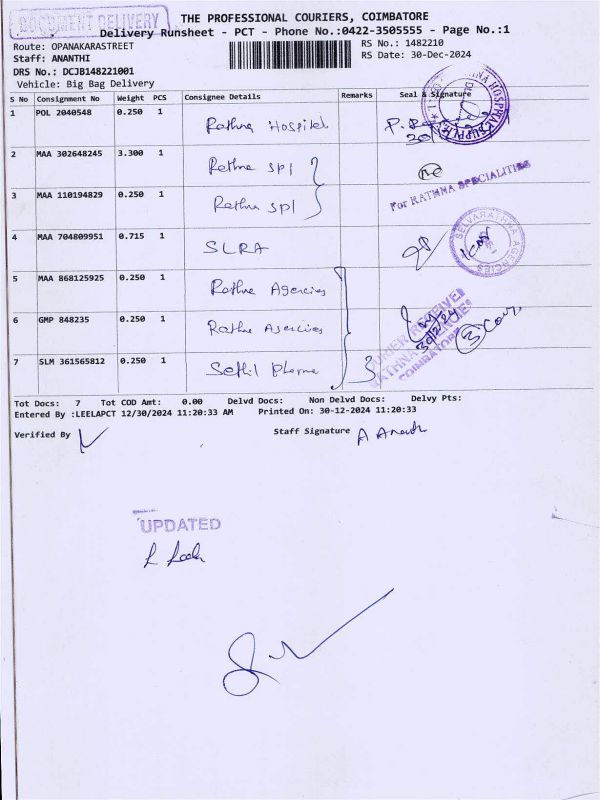 DOCUMENT DELIVERY
THE PROFESSIONAL COURIERS, COIMBATORE
Delivery Runsheet - PCT - Phone No.:0422-3505555 - Page No.:1
Route: OPANAKARASTREET
RS No.: 1482210
Staff: ANANTHI
RS Date: 30-Dec-2024
DRS No.: DCJB148221001
Vehicle: Big Bag Delivery
S No Consignment No Weight PCS Consignee Details Remarks Seal & Signature
1 POL 2040548 0.250 1 Rathna Hospital
2 MAA 302648245 3.300 1 Rathna spl
3 MAA 110194829 0.250 1 Rathna spl
For RATHNA SPECIALITIES
4 MAA 704809951 0.715 1 SLRA
SELVARATHNA AGENCIES
5 MAA 868125925 0.250 1 Rathna Agencies
6 GMP 848235 0.250 1 Rathna Agencies
COURIER RECEIVED
RATHNA AGENCIES
COIMBATORE
7 SLM 361565812 0.250 1 Sethil Pharma
Tot Docs: 7 Tot COD Amt: 0.00 Delvd Docs: Non Delvd Docs: Delvy Pts:
Entered By :LEELAPCT 12/30/2024 11:20:33 AM Printed On: 30-12-2024 11:20:33
Verified By
Staff Signature A Ananth
UPDATED